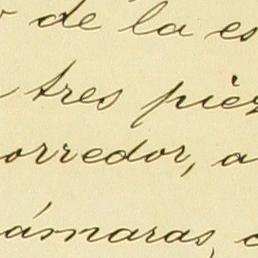 de la es
tres piez
orredor, a
ámaras, c